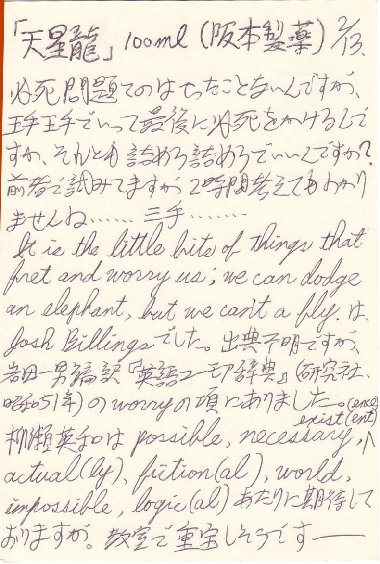 「天星龍」100ml (阪本製薬) 2/13.
必死問題てのはやったことないんですが、
王手王手でいって最後に必死をかけるんで
すか、それとも詰めろ詰めろでいいんですか?
前者で試みてますが2時間考えてもわかり
ませんね…… 三手………
It is the little bits of things that
fret and worry us; we can dodge
an elephant, but we can't a fly. は、
Josh Billingsでした。出典不明ですが、
岩田一男編訳『英語ユーモア辞典』(研究社、
昭和51年)のworryの項にありました。
柳瀬英和は possible, necessary, exist(ent)(ence)
actual(ly), fiction(al), world,
impossible, logic(al) あたりに期待して
おりますが。教室で重宝しそうです——